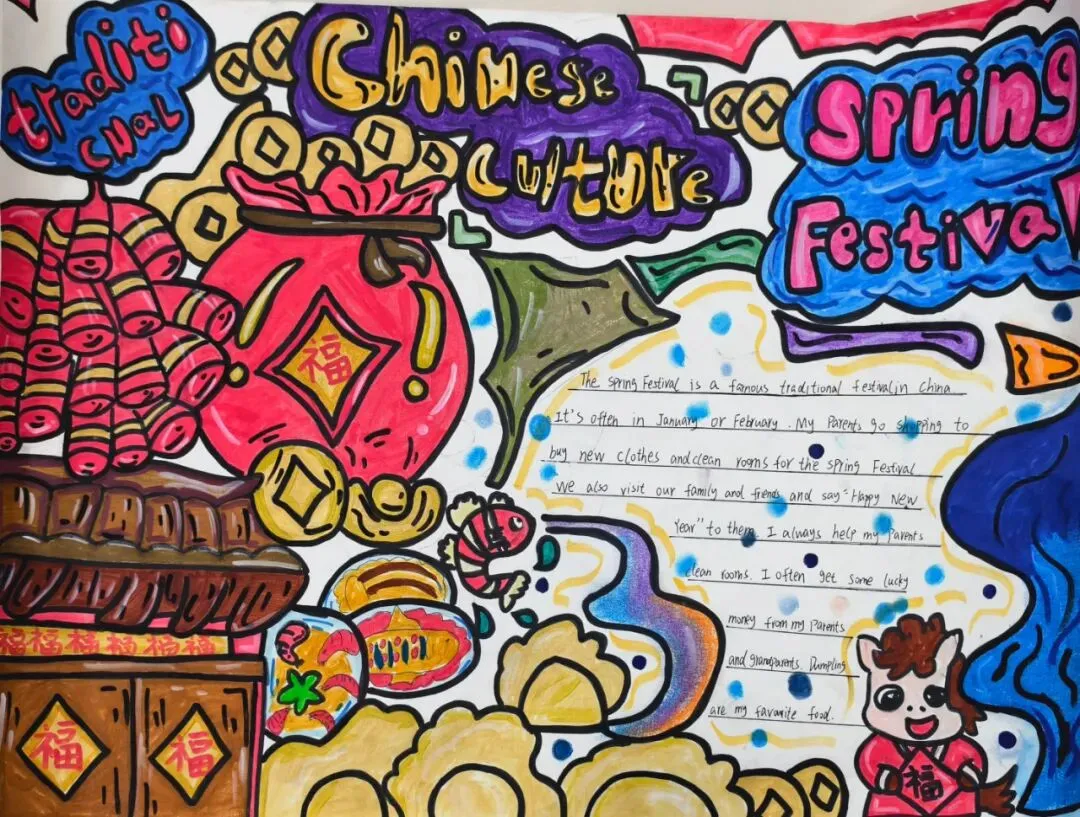 traditi
onal
Chinese
Culture
Spring
Festival
福
The Spring Festival is a famous traditional festival in China
It's often in January or February. My Parents go shopping to
buy new clothes and clean rooms for the Spring Festival
We also visit our family and friends and say "Happy New
Year" to them. I always help my Parents
clean rooms. I often get some lucky
money from my Parents
and grandparents. Dumpling
are my favourite food.
福福福福福福
福 福
福